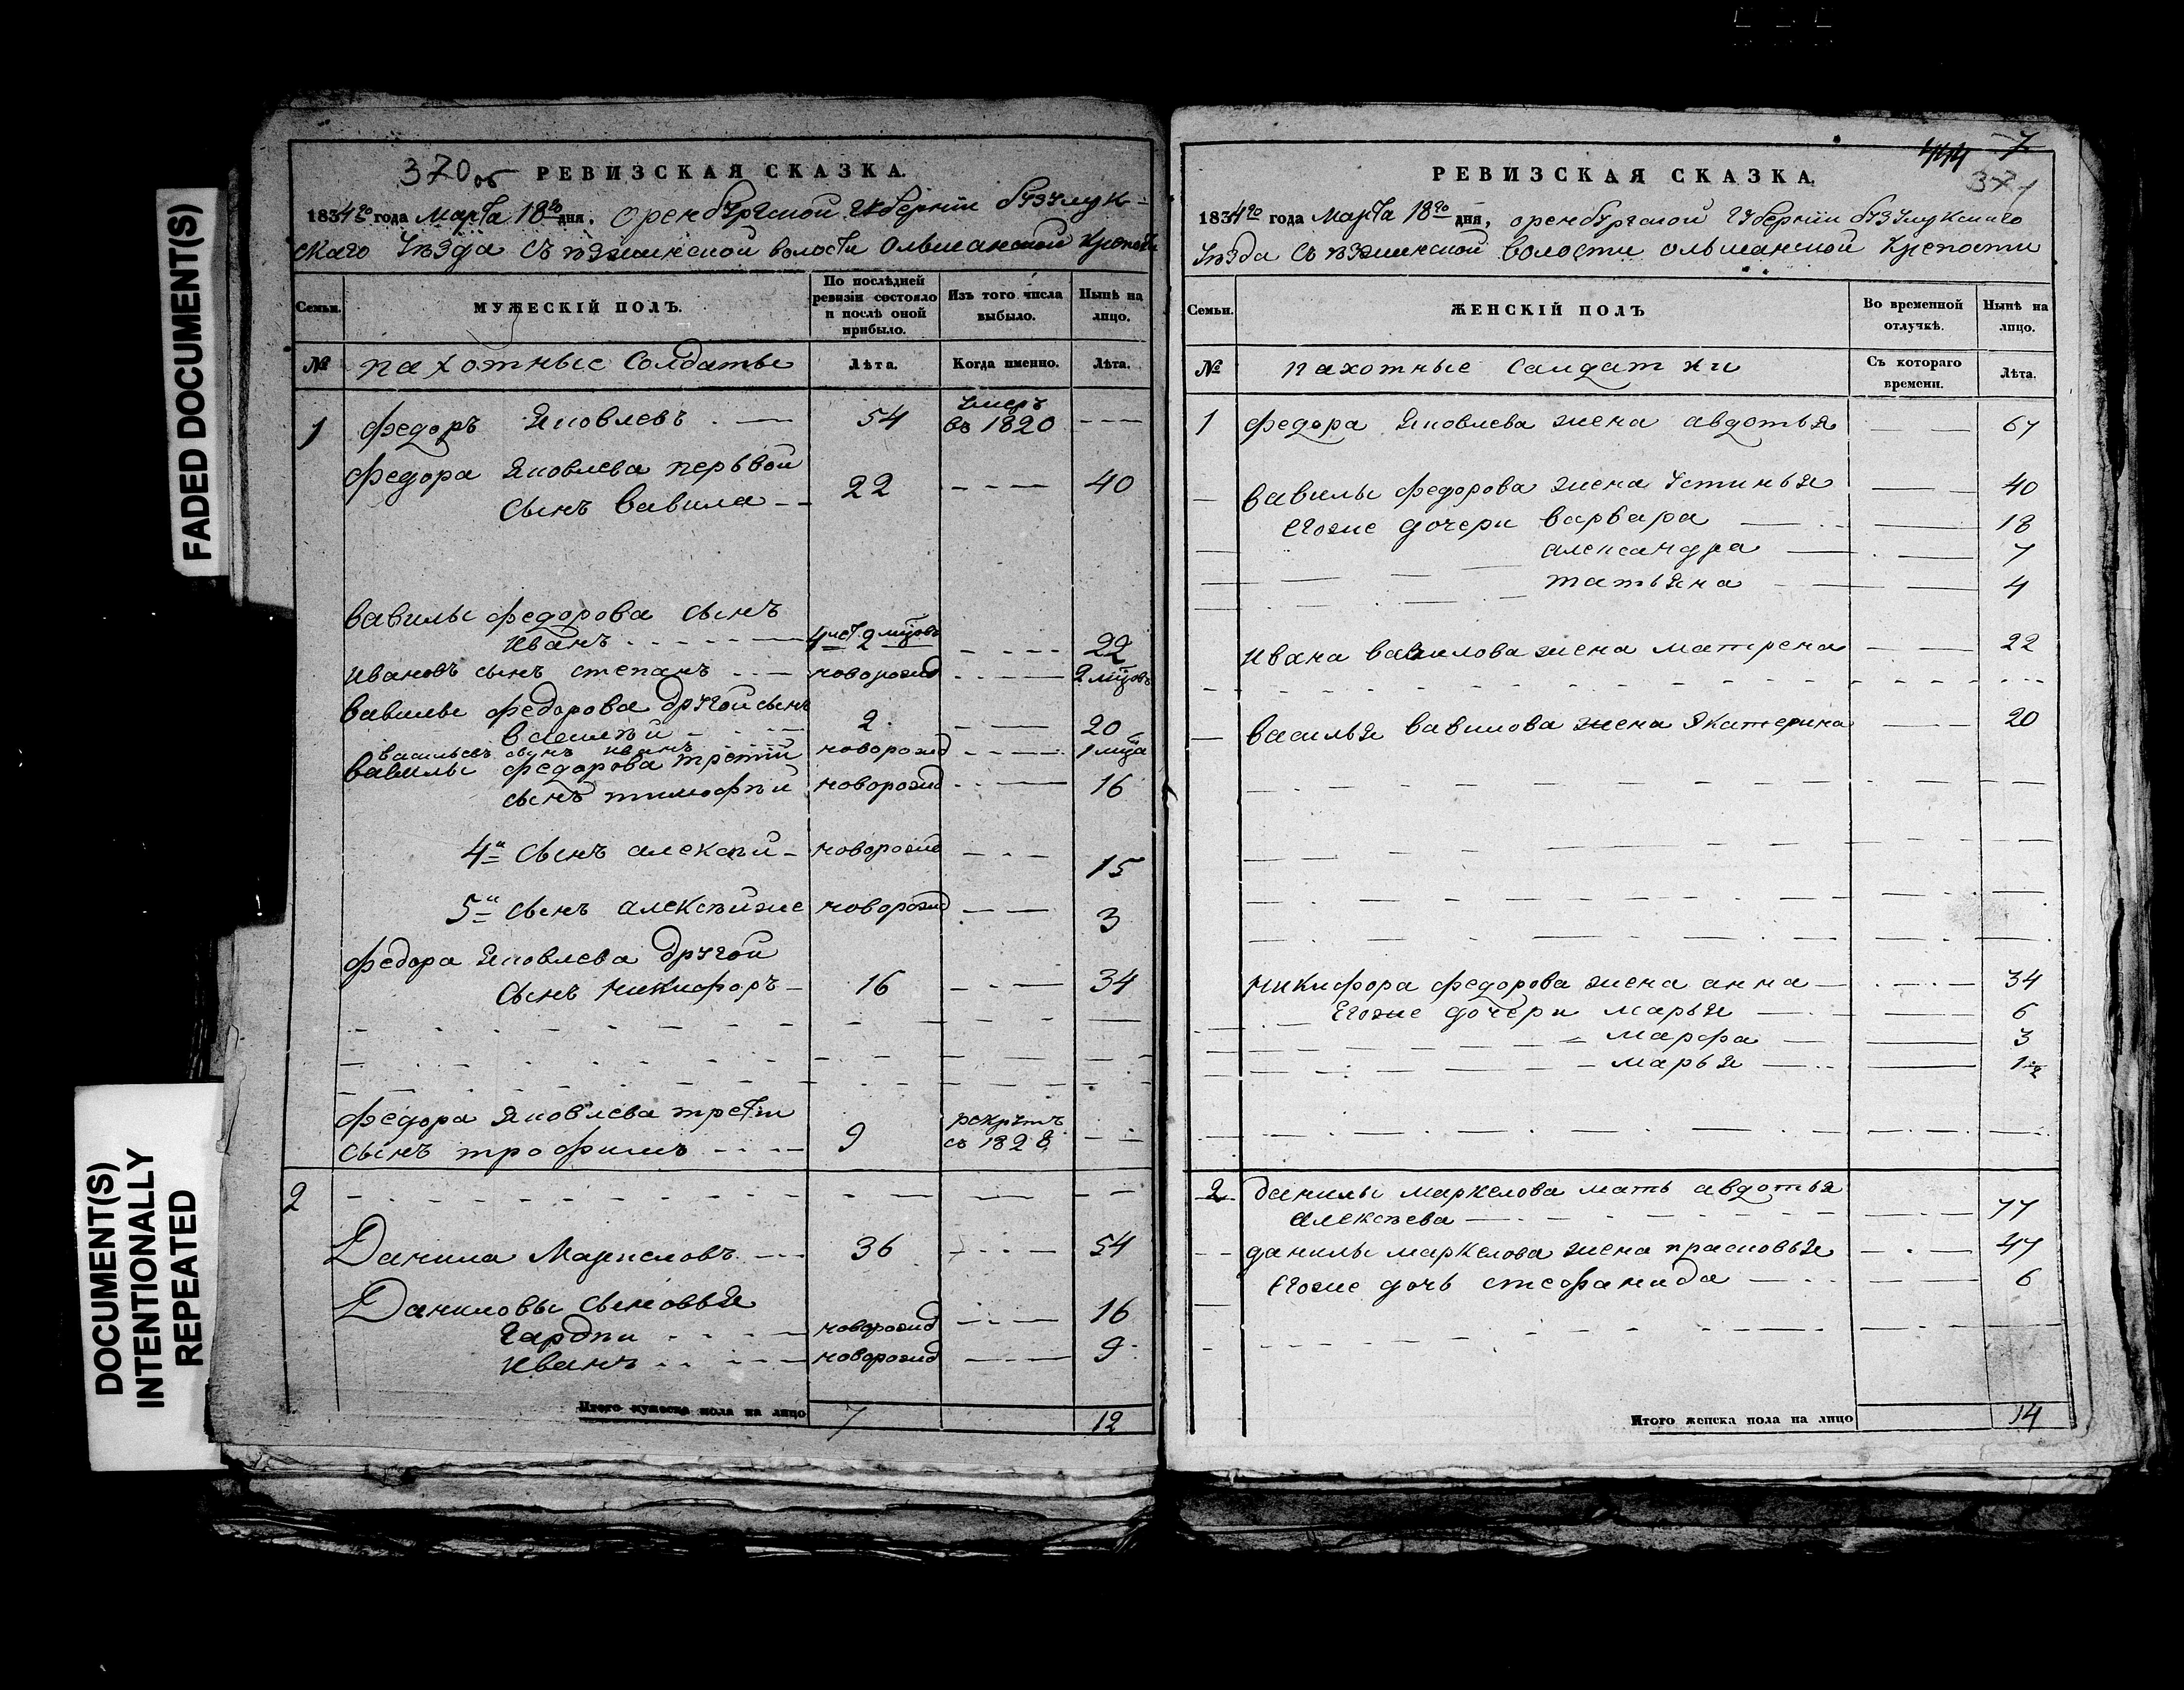 FADED DOCUMENT(S)
DOCUMENT(S)
INTENTIONALLY
REPEATED
370 об РЕВИЗСКАЯ СКАЗКА.
1834го года Марта 18го дня, Оренбургской Губернiи бузулук-
скаго уѣзда Съѣзжинской волости Ольшанской крепости
Семьи.
МУЖЕСКIЙ ПОЛЪ.
По послѣдней ревизiи состояло и послѣ оной прибыло.
Изъ того числа выбыло.
Нынѣ на лицо.
№ пахотные Солдаты Лѣта. Когда именно. Лѣта.
1 Федоръ Яковлевъ 54 умеръ въ 1820
Федора Яковлева первой
сынъ вавила 22 40
вавилы федорова сынъ
иванъ 4 лет 2 мцовъ 22
ивановъ сынъ степанъ новорожд 2 мцовъ
вавилы федорова другой сынъ
василѣй 2 20
васильевъ сынъ иванъ новорожд 1 мца
вавилы федорова третiй
сынъ тимофѣй новорожд 16
4й сынъ алексѣй новорожд 15
5й сынъ алексѣйже новорожд 3
федора Яковлева другой
сынъ никифоръ 16 34
федора Яковлева трети
сынъ трофимъ 9 рекрутъ съ 1828
2
Данила Маркеловъ 36 54
Даниловы сыновья
Гардѣи новорожд 16
иванъ новорожд 9
Итого мужеска пола на лицо 7 12
444 7
371
РЕВИЗСКАЯ СКАЗКА.
1834го года Марта 18го дня, оренбургской Губернiи бузулукскаго
уѣзда Съѣзжинской волости ольшанской крепости
Семьи.
ЖЕНСКIЙ ПОЛЪ
Во временной отлучкѣ.
Нынѣ на лицо.
№ пахотные салдатки Съ котораго времени. Лѣта.
1 федора Яковлева жена авдотья 67
вавилы федорова жена устинья 40
Егоже дочери варвара 18
александра 7
татьяна 4
ивана вавилова жена матрена 22
василья вавилова жена Екатерина 20
никифора федорова жена анна 34
Егоже дочери марья 6
марфа 3
марья
2 данилы маркелова мать авдотья
алексѣева 77
данилы маркелова жена прасковья 47
Егоже дочь стефанида 6
Итого женска пола на лицо 14